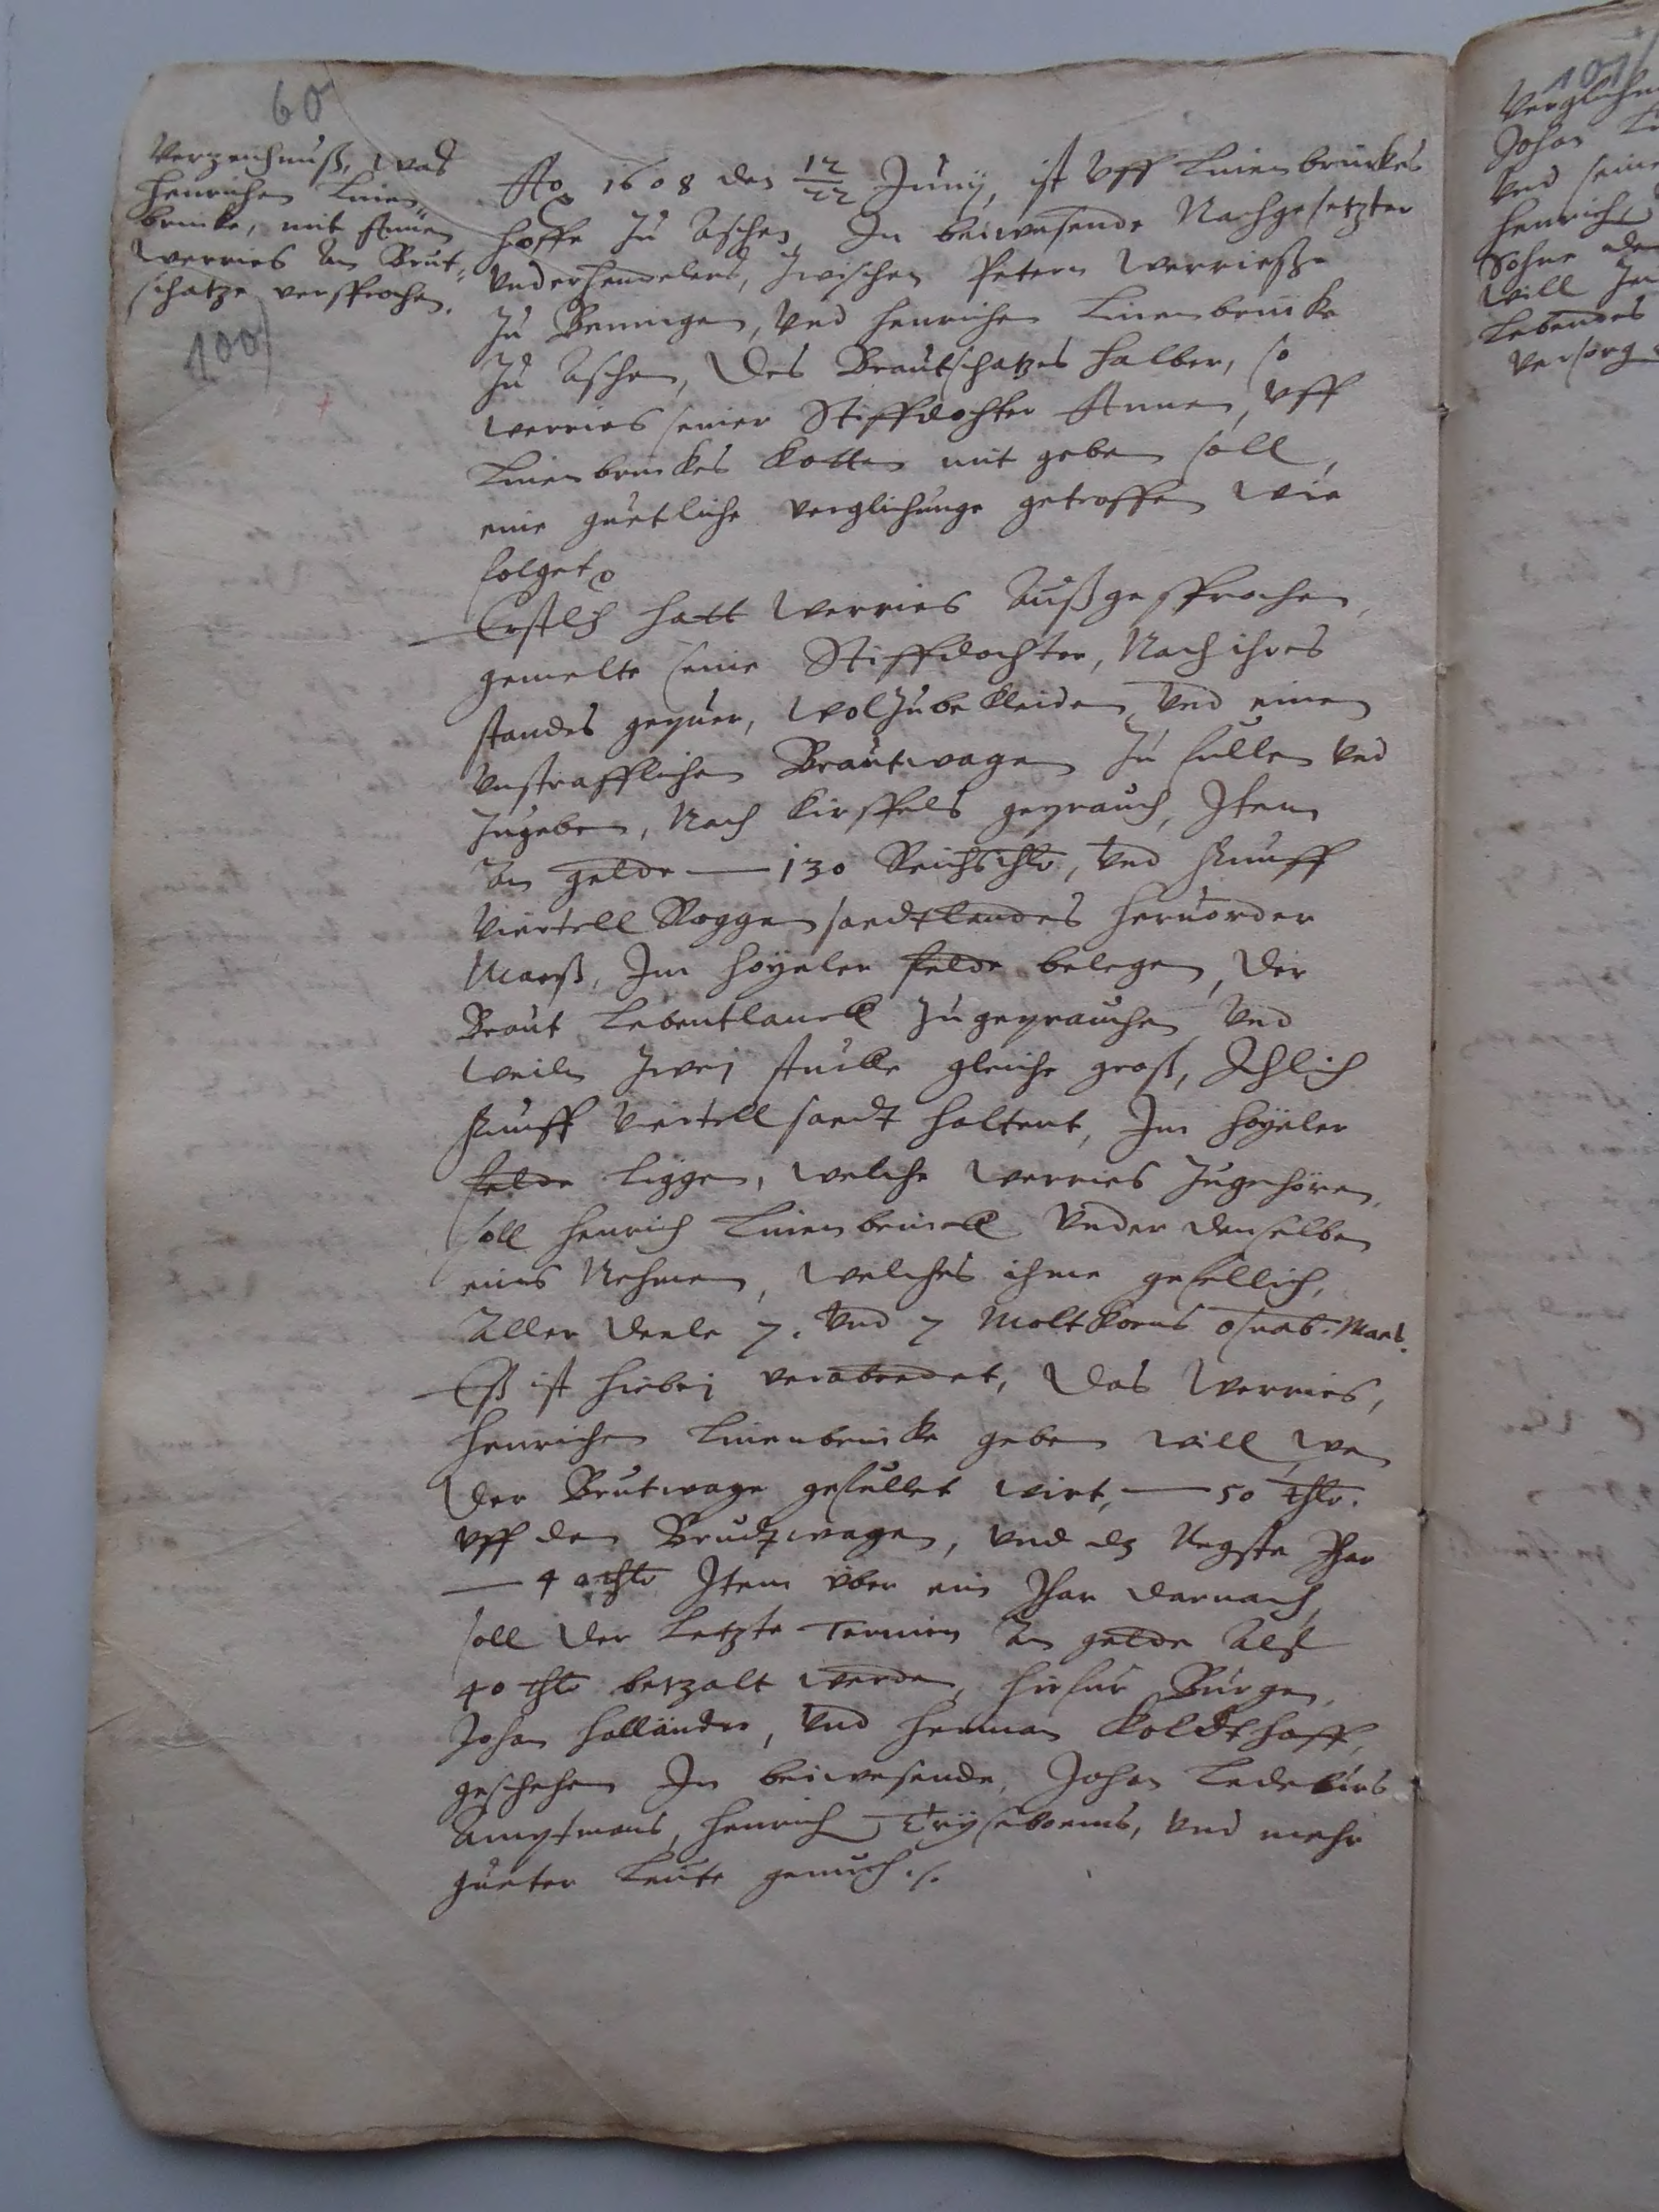 60
Verzeichnuß, was
Henrichen Linen„
brincke, mit Annen
Werries an Brut„
schatze versprochen.
100
Ao 1608 den 12/22 Junij, ist vff Linenbrinckes
hoffe zu Aschen, In beiwesende Nachgesetzter
vnderhendelers, zwischen Petern Werriesse
zu Bennigen, vnd Henrichen Linenbrincke
zu Aschen, des Brautschatzes halber, so
Werries seiner Stiffdochter Annen, vff
Linenbrinckes Kotten mit geben soll,
eine guetliche verglichunge getroffen wie
folget
Erstlich hatt Werries außgesprochen,
gemelte seine Stiffdochter, Nach ihres
standes gepuer, wol zubekleiden, vnd einen
vnstrafflichen Brautwagen zu fullen vnd
zugeben, Nach Kirspels geprauch, Item
An gelde — 130 Reichsthlr, vnd funff
viertell Roggen saedtlandes heruorder
Maeß, Im Hoyeler felde belegen, der
Braut Lebentlanck zugeprauchen, vnd
weiln zwej stucke gleiche groß, Ihlich
funff viertell saedt haltent, Im Hoyeler
felde liggen, welche Werries zugehören,
soll Henrich Linenbrinck vnder denselben
eins Nehmen, welches ihme gefellich,
Aller deele 7. vnd 7 Molt Korns oßnab. Maeß.
Eß ist hiebej verabredet, das Werries,
Henrichen Linenbrincke geben will, wen
der Brutwage gefullet wirt, — 50 thlr.
vff den Brudtwagen, vnd dz Negste Jhar
— 40 thlr Item vber ein Jhar darnach,
soll der Letzte Termin An gelde Alß
40 thlr betzalt werden, hirfur Burgen,
Johan Holländer, vnd Herman Koldthoff,
geschehen In beiwesende, Johan Ledeburs
Amptmans, Henrich Tryseboems, vnd mehr
gueter Leute genuch ./.
101
Verglichun
Johan Li
vnd seine
Henrich
Sohne
will
Lebendes
versorg